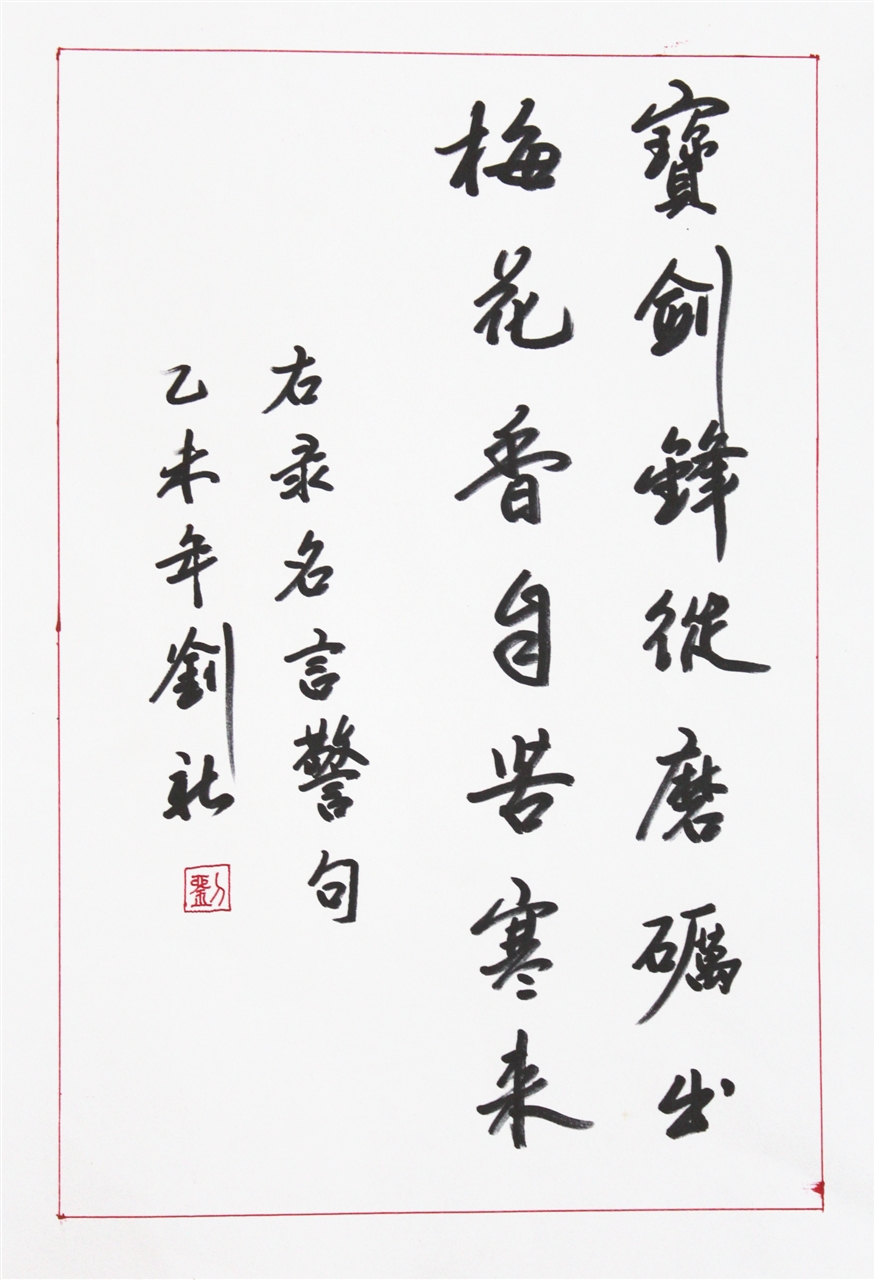 寶劍鋒從磨礪出
梅花香自苦寒来
右录名言警句
乙未年劉
劉